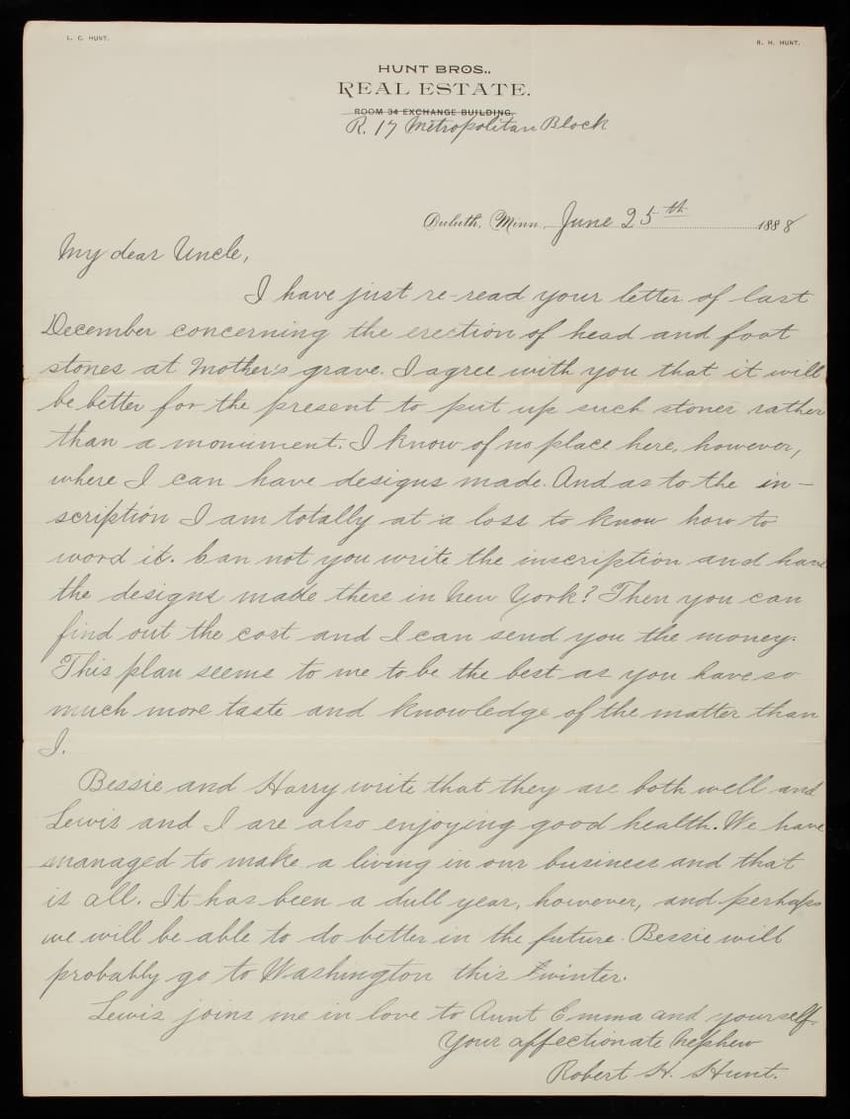 L. C. HUNT.
R. H. HUNT.
HUNT BROS.,
REAL ESTATE.
ROOM 34 EXCHANGE BUILDING,
R. 17 Metropolitan Block
Duluth, Minn., June 25th 1888
My dear Uncle,
I have just re-read your letter of last
December concerning the erection of head and foot
stones at Mother's grave. I agree with you that it will
be better for the present to put up such stones rather
than a monument. I know of no place here, however,
where I can have designs made. And as to the in-
scription I am totally at a loss to know how to
word it. Can not you write the inscription and have
the designs made there in New York? Then you can
find out the cost and I can send you the money.
This plan seems to me to be the best as you have so
much more taste and knowledge of the matter than
I.
Bessie and Harry write that they are both well and
Lewis and I are also enjoying good health. We have
managed to make a living in our business and that
is all. It has been a dull year, however, and perhaps
we will be able to do better in the future. Bessie will
probably go to Washington this winter.
Lewis joins me in love to Aunt Emma and yourself.
Your affectionate nephew
Robert H. Hunt.